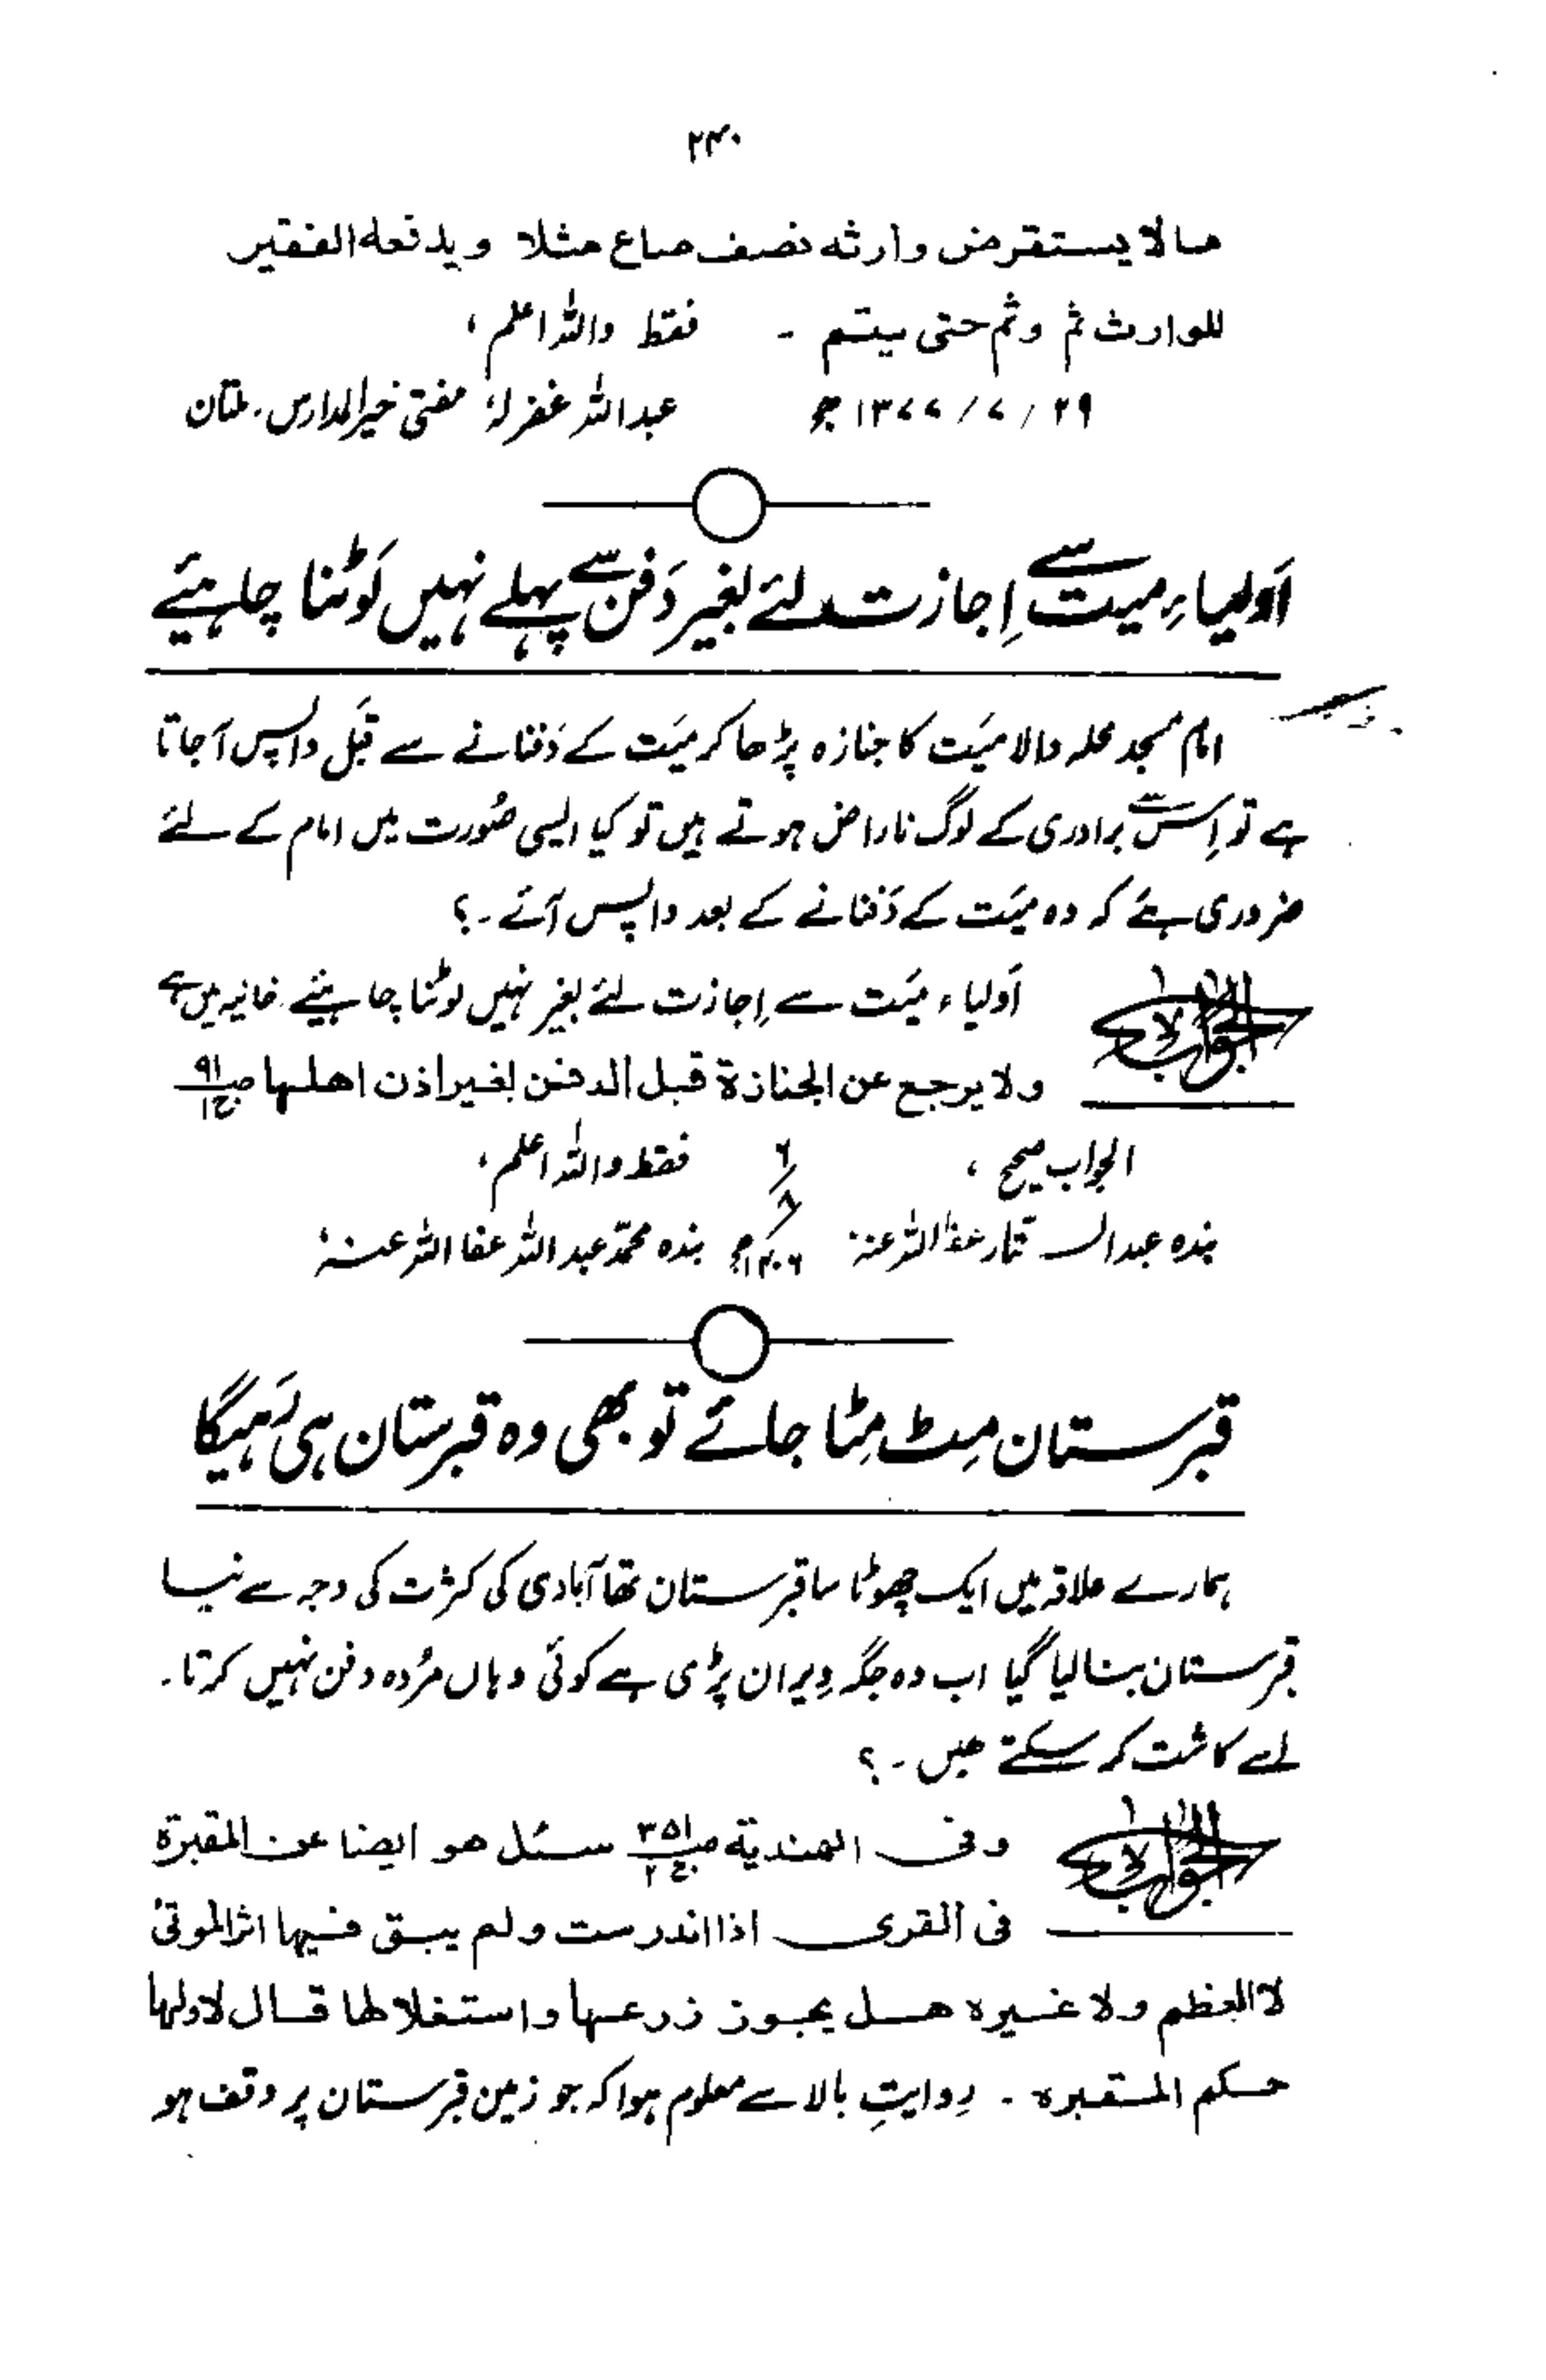 ۲۴۰
مالا يستقرض وارثه نصف صاع مثلا ويدفعه الفقير
للوارث ثم وثم حتى يتم ۔ فقط واللہ اعلم،
۲۹ / ۷ / ۱۳۷۷ھ عبداللہ غفرلہٗ مفتی خیرالمدارس۔ ملتان
اَولیاءِ میت سے اِجازت لئے بغیر دَفن سے پہلے نہیں لَوٹنا چاہئیے
امام مسجد محلہ والا میّت کا جنازہ پڑھا کر میّت کے دَفنانے سے قبَل واپس آجاتا
ہے تو اِس سے برادری کے لوگ ناراض ہوتے ہیں تو کیا ایسی صُورت میں امام کے لئے
ضروری ہے کہ وہ میّت کے دَفنانے کے بعد واپس آئے۔؟
الجواب اَولیاء میّت سے اِجازت لئے بغیر نہیں لوٹنا چاہئیے خانیہ میں ہے
ولا يرجع عن الجنازة قبل الدفن بغير اذن اهلها ص ۹۱ ج ۱
الجواب صحیح، ۶ / ۸ فقط واللہ اعلم،
بندہ عبدالستار عفا اللہ عنہٗ ۱۴۰۶ھ بندہ محمّد عبداللہ عفا اللہ عنہٗ
قبرستان مِٹ مِٹا جائے تو بھی وہ قبرستان ہی رَہیگا
ہمارے علاقہ میں ایک چھوٹا سا قبرستان تھا آبادی کی کثرت کی وجہ سے نیا
قبرستان بنا لیا گیا اب وہ جگہ وِیران پڑی ہے کوئی وہاں مرُدہ دفن نہیں کرتا۔
اسے کاشت کر سکتے ہیں ۔؟
الجواب وفی الهندية ص ۳۵۱ ج ۲ سئل هو ايضا عن المقبرة
فى القرى اذا اندرست ولم يبق فيها اثر الموتىٰ
لا العظم ولا غيره هل يجوز زرعها واستغلالها قال لا ولها
حكم المقبره ۔ رِوایتِ بالا سے معلوم ہوا کہ جو زمین قبرستان پر وقف ہو